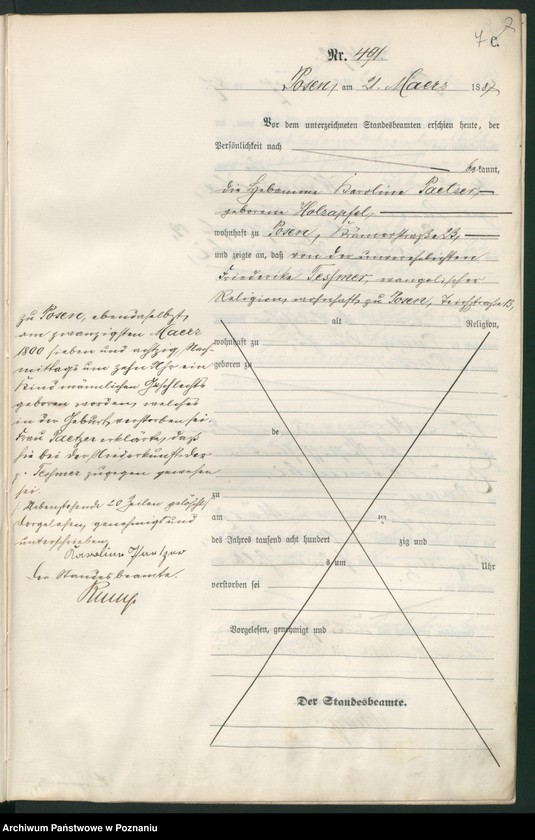 7
7 C.
Nr. 491.
Posen, am 21. Maerz 1887
Vor dem unterzeichneten Standesbeamten erschien heute, der
Persönlichkeit nach
bekannt,
die Hebamme Karoline Paetzer,
geborene Holzapfel,
wohnhaft zu Posen, Krämerstraße 23,
und zeigte an, daß von der unverehelichten
Friederike Tessmer, evangelischer
Religion, wohnhaft zu Posen, Teichstraße 13,
alt Religion,
wohnhaft zu
geboren zu
de
zu
am
des Jahres tausend acht hundert zig und
s um Uhr
verstorben sei
Vorgelesen, genehmigt und
Der Standesbeamte.
zu Posen, ebendaselbst,
am zwanzigsten Maerz
1800 sieben und achtzig, Nach-
mittags um zehn Uhr ein
Kind männlichen Geschlechts
geboren worden, welches
in der Geburt verstorben sei.
Frau Paetzer erklärte, daß
sie bei der Niederkunft der
p. Tessmer zugegen gewesen
sei.
Nebenstehende 20 Zeilen gelöscht.
Vorgelesen, genehmigt und
unterschrieben
Karoline Paetzer
Der Standesbeamte.
Archiwum Państwowe w Poznaniu